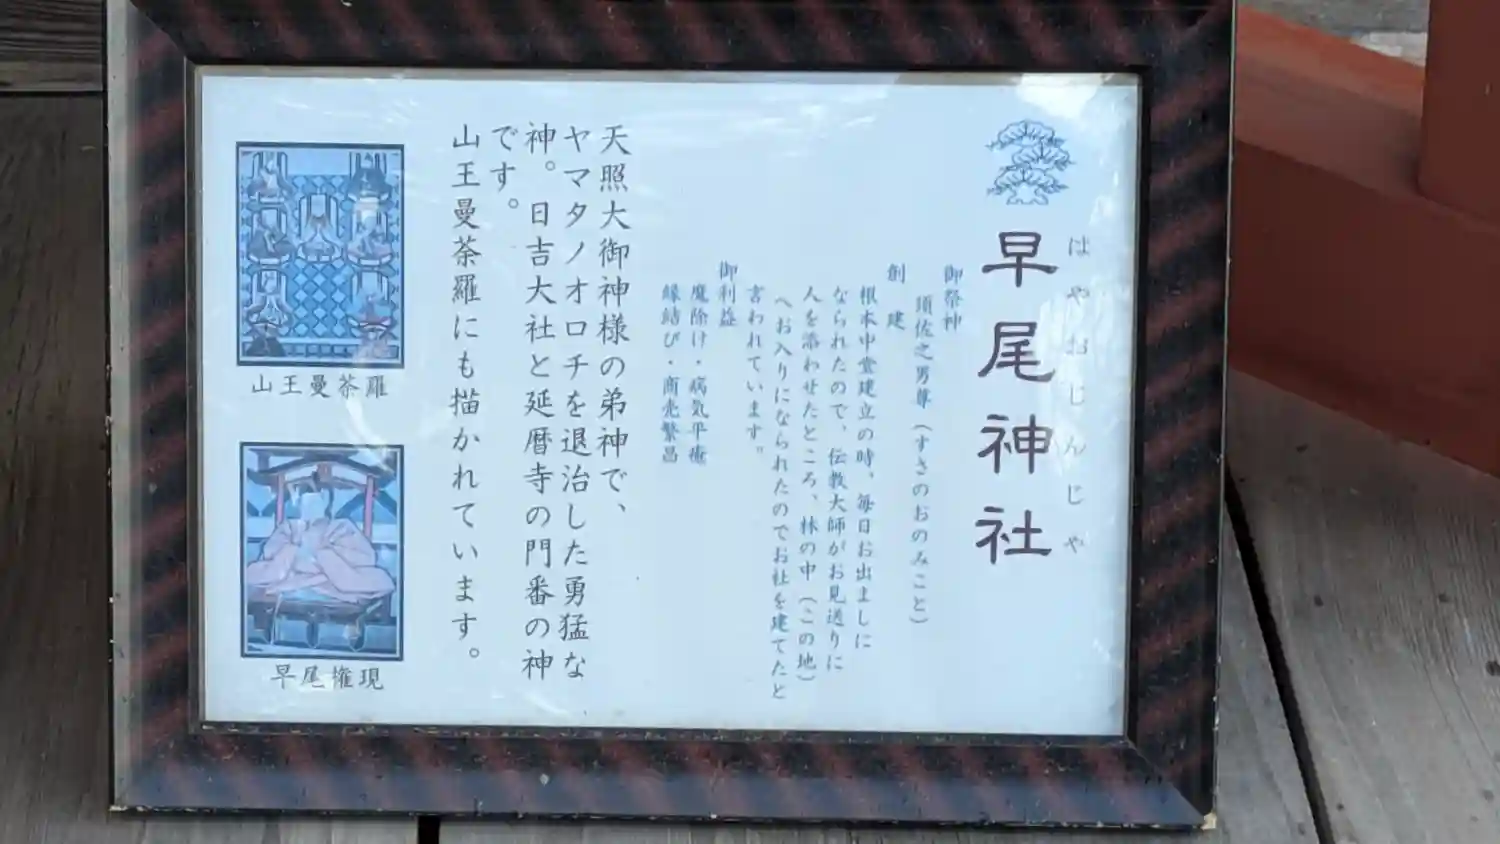 早尾神社
はやおじんじゃ
御祭神
須佐之男尊(すさのおのみこと)
創建
根本中堂建立の時、毎日お出ましに
なられたので、伝教大師がお見送りに
人を添わせたところ、林の中(この地)
へお入りになられたのでお社を建てたと
言われています。
御利益
魔除け・病気平癒
縁結び・商売繁昌
天照大御神様の弟神で、
ヤマタノオロチを退治した勇猛な
神。日吉大社と延暦寺の門番の神
です。
山王曼荼羅にも描かれています。
山王曼荼羅
早尾権現